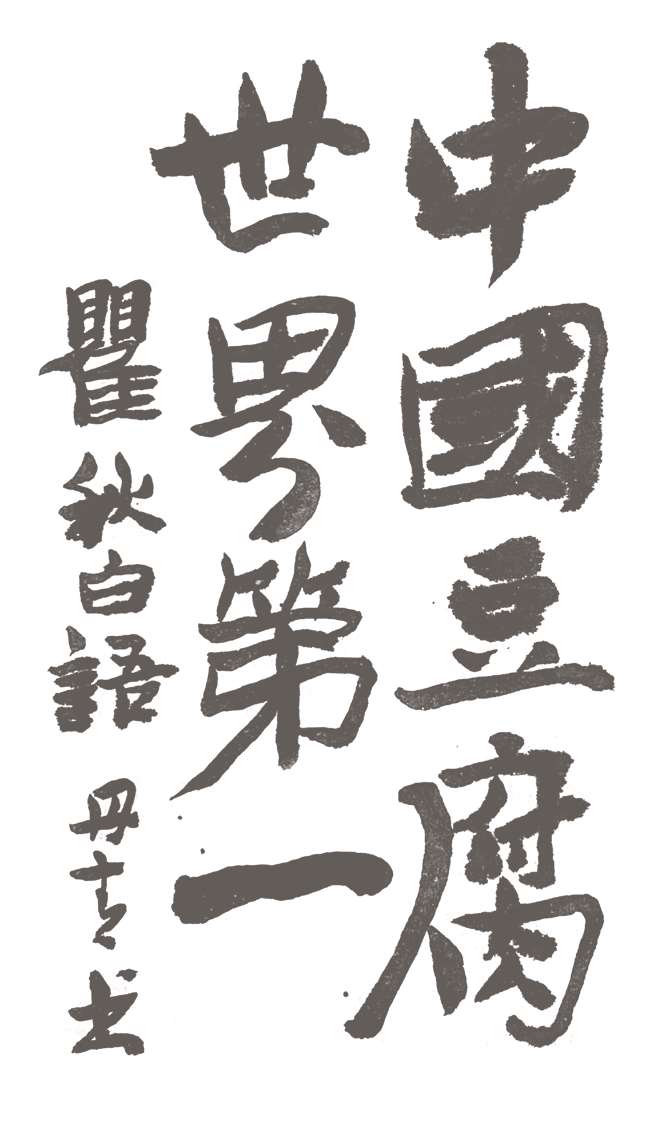 中國豆腐
世界第一
瞿秋白語 丹青书